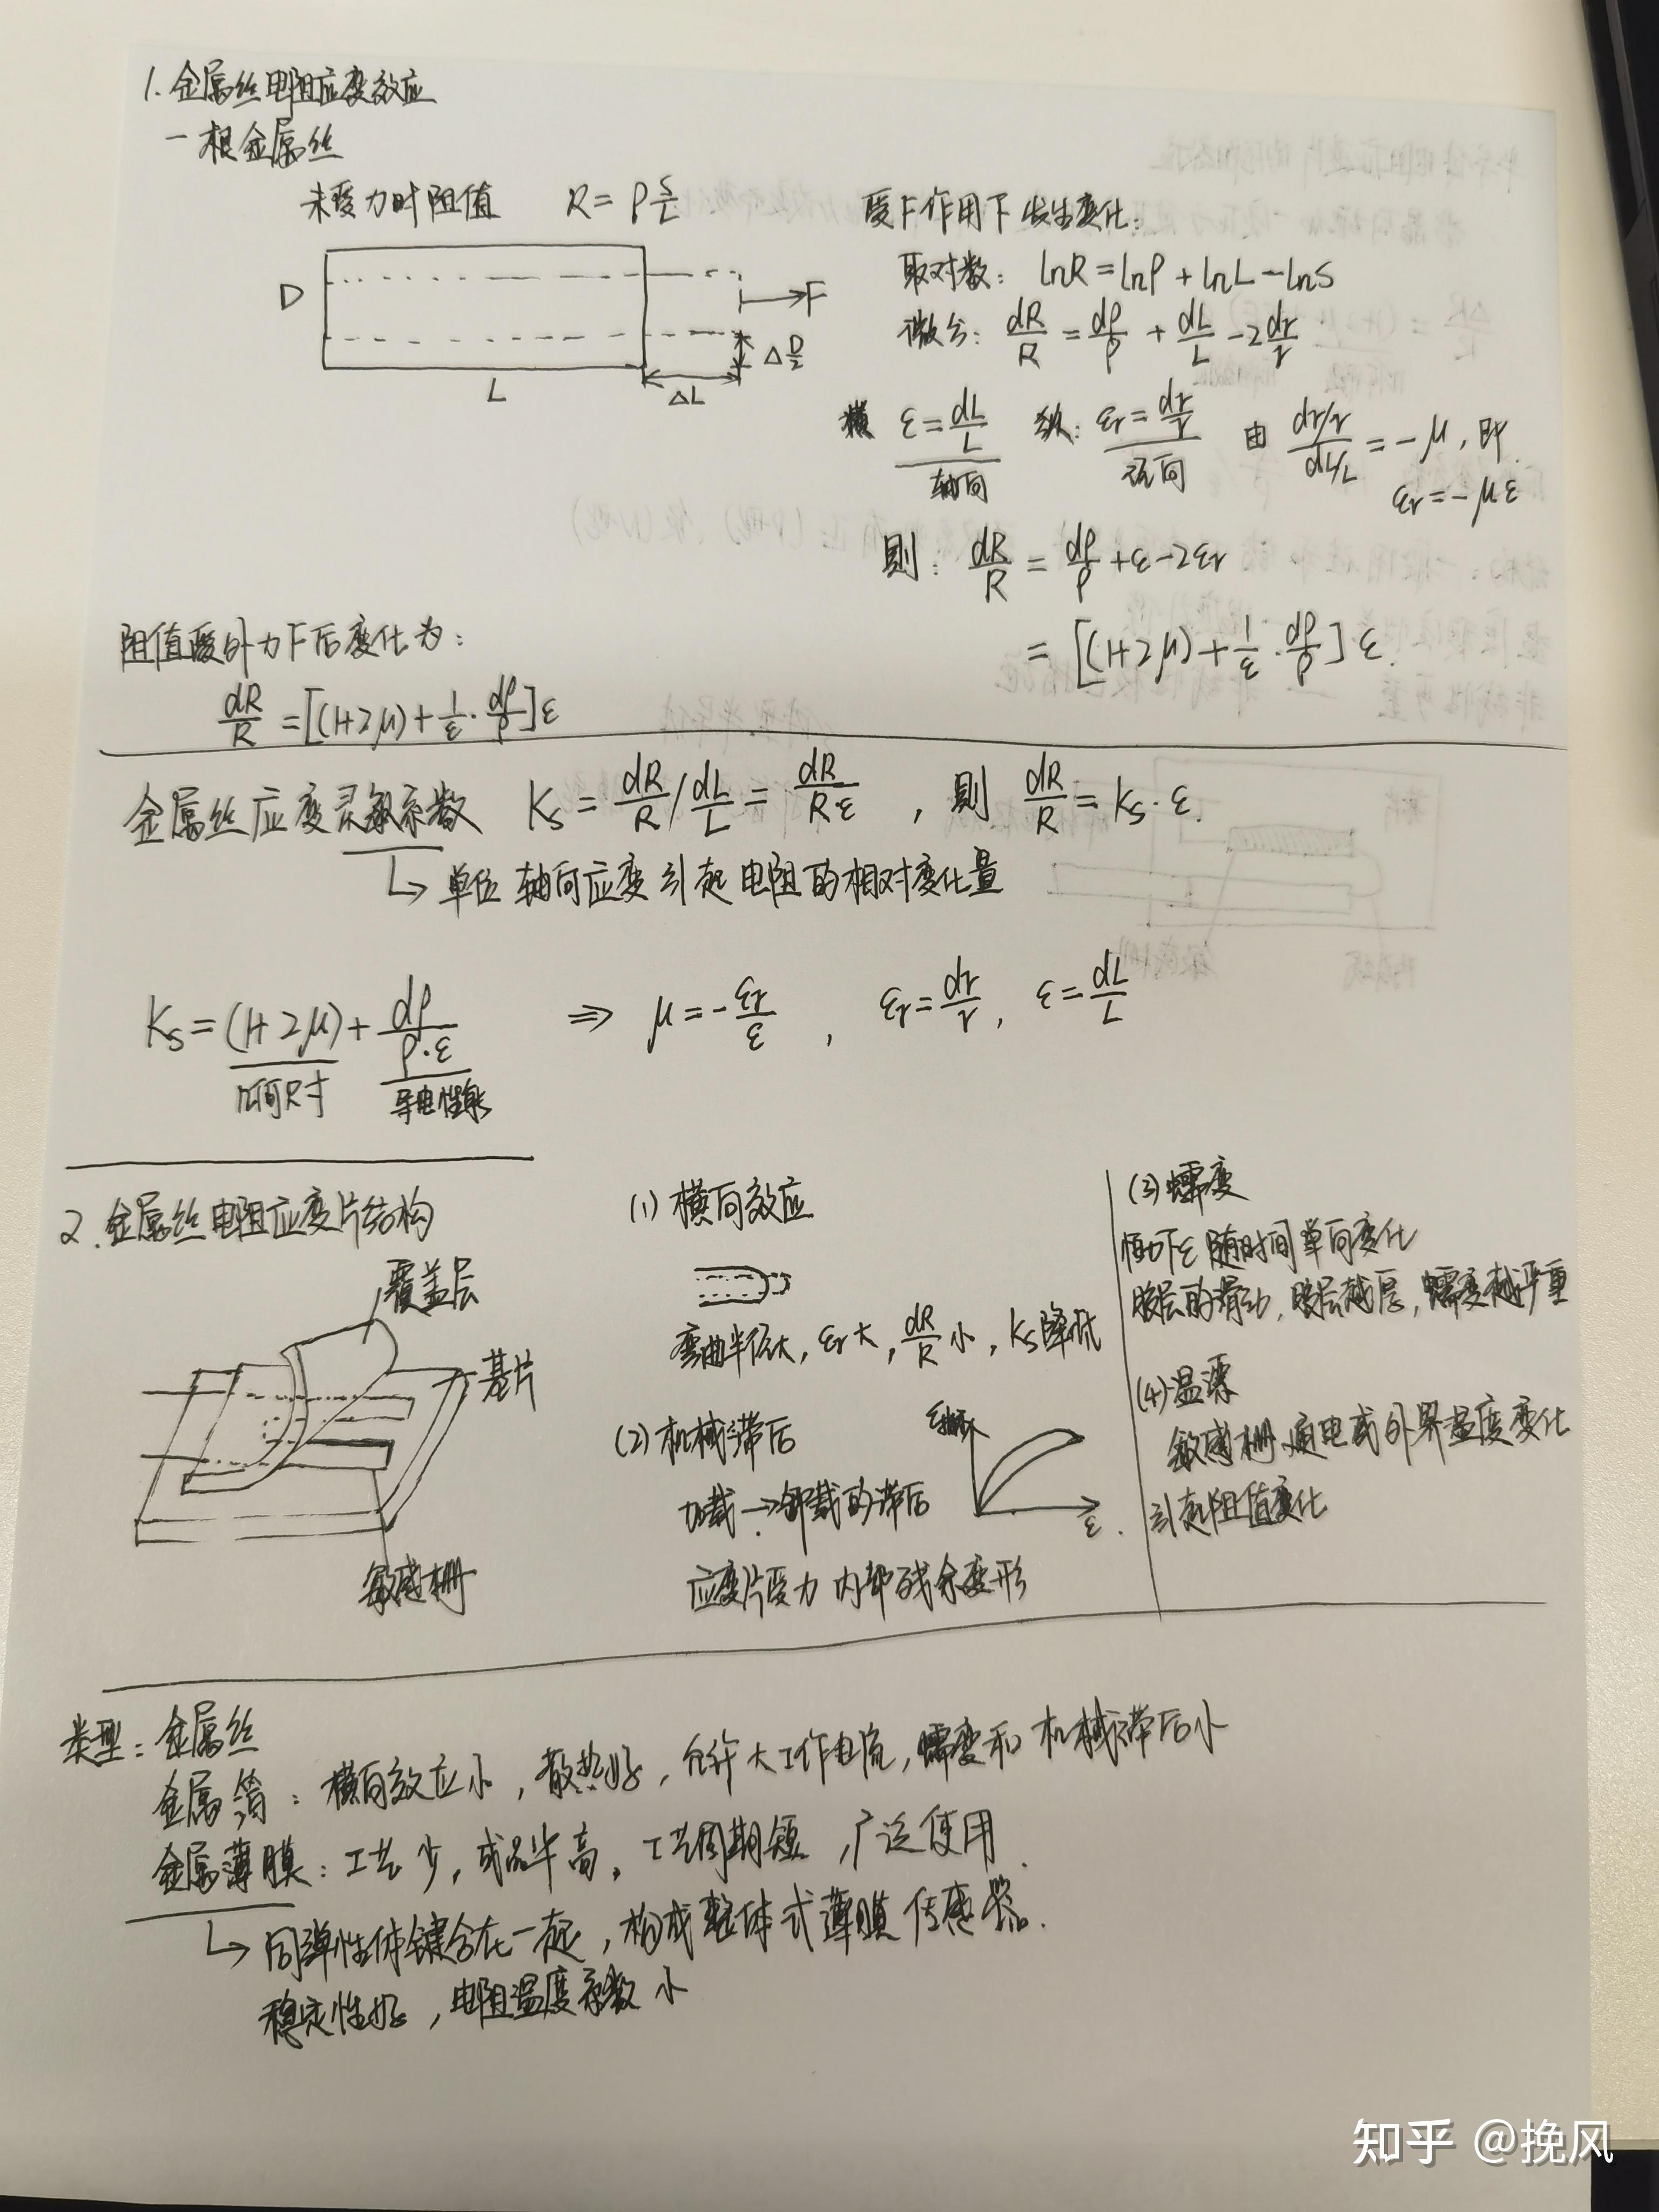 1. 金属丝电阻应变效应
一根金属丝
未受力时阻值 R = ρ S/L
D
F
Δ D/2
L
ΔL
受F作用下发生变化:
取对数: lnR = lnρ + lnL - lnS
微分: dR/R = dρ/ρ + dL/L - 2 dr/r
横 ε = dL/L 纵: εr = dr/r 由 (dr/r)/(dL/L) = -μ, 即
轴向 径向 εr = -με
则: dR/R = dρ/ρ + ε - 2εr
= [(1+2μ) + 1/ε · dρ/ρ] ε
阻值受外力F后变化为:
dR/R = [(1+2μ) + 1/ε · dρ/ρ] ε
金属丝应变灵敏系数 Ks = dR/R / dL/L = dR/Rε , 则 dR/R = Ks · ε.
↳ 单位轴向应变引起电阻的相对变化量
Ks = (1+2μ) + dρ/ρ·ε ⇒ μ = - εr/ε , εr = dr/r, ε = dL/L
几何尺寸 导电性能
2. 金属丝电阻应变片结构
覆盖层
基片
敏感栅
(1) 横向效应
弯曲半径大, εr大, dR/R 小, Ks降低
(2) 机械滞后
加载→卸载的滞后
ε
应变片受力 内部残余变形
(3) 蠕变
恒力下ε随时间单向变化
胶层的滑动, 胶层越厚, 蠕变越严重
(4) 温漂
敏感栅通电或外界温度变化
引起阻值变化
类型: 金属丝
金属箔: 横向效应小, 散热好, 允许大工作电流, 蠕变和机械滞后小
金属薄膜: 工艺少, 成品率高, 工艺周期短, 广泛使用
↳ 同弹性体键合在一起, 构成整体式薄膜传感器.
稳定性好, 电阻温度系数小
知乎 @挽风